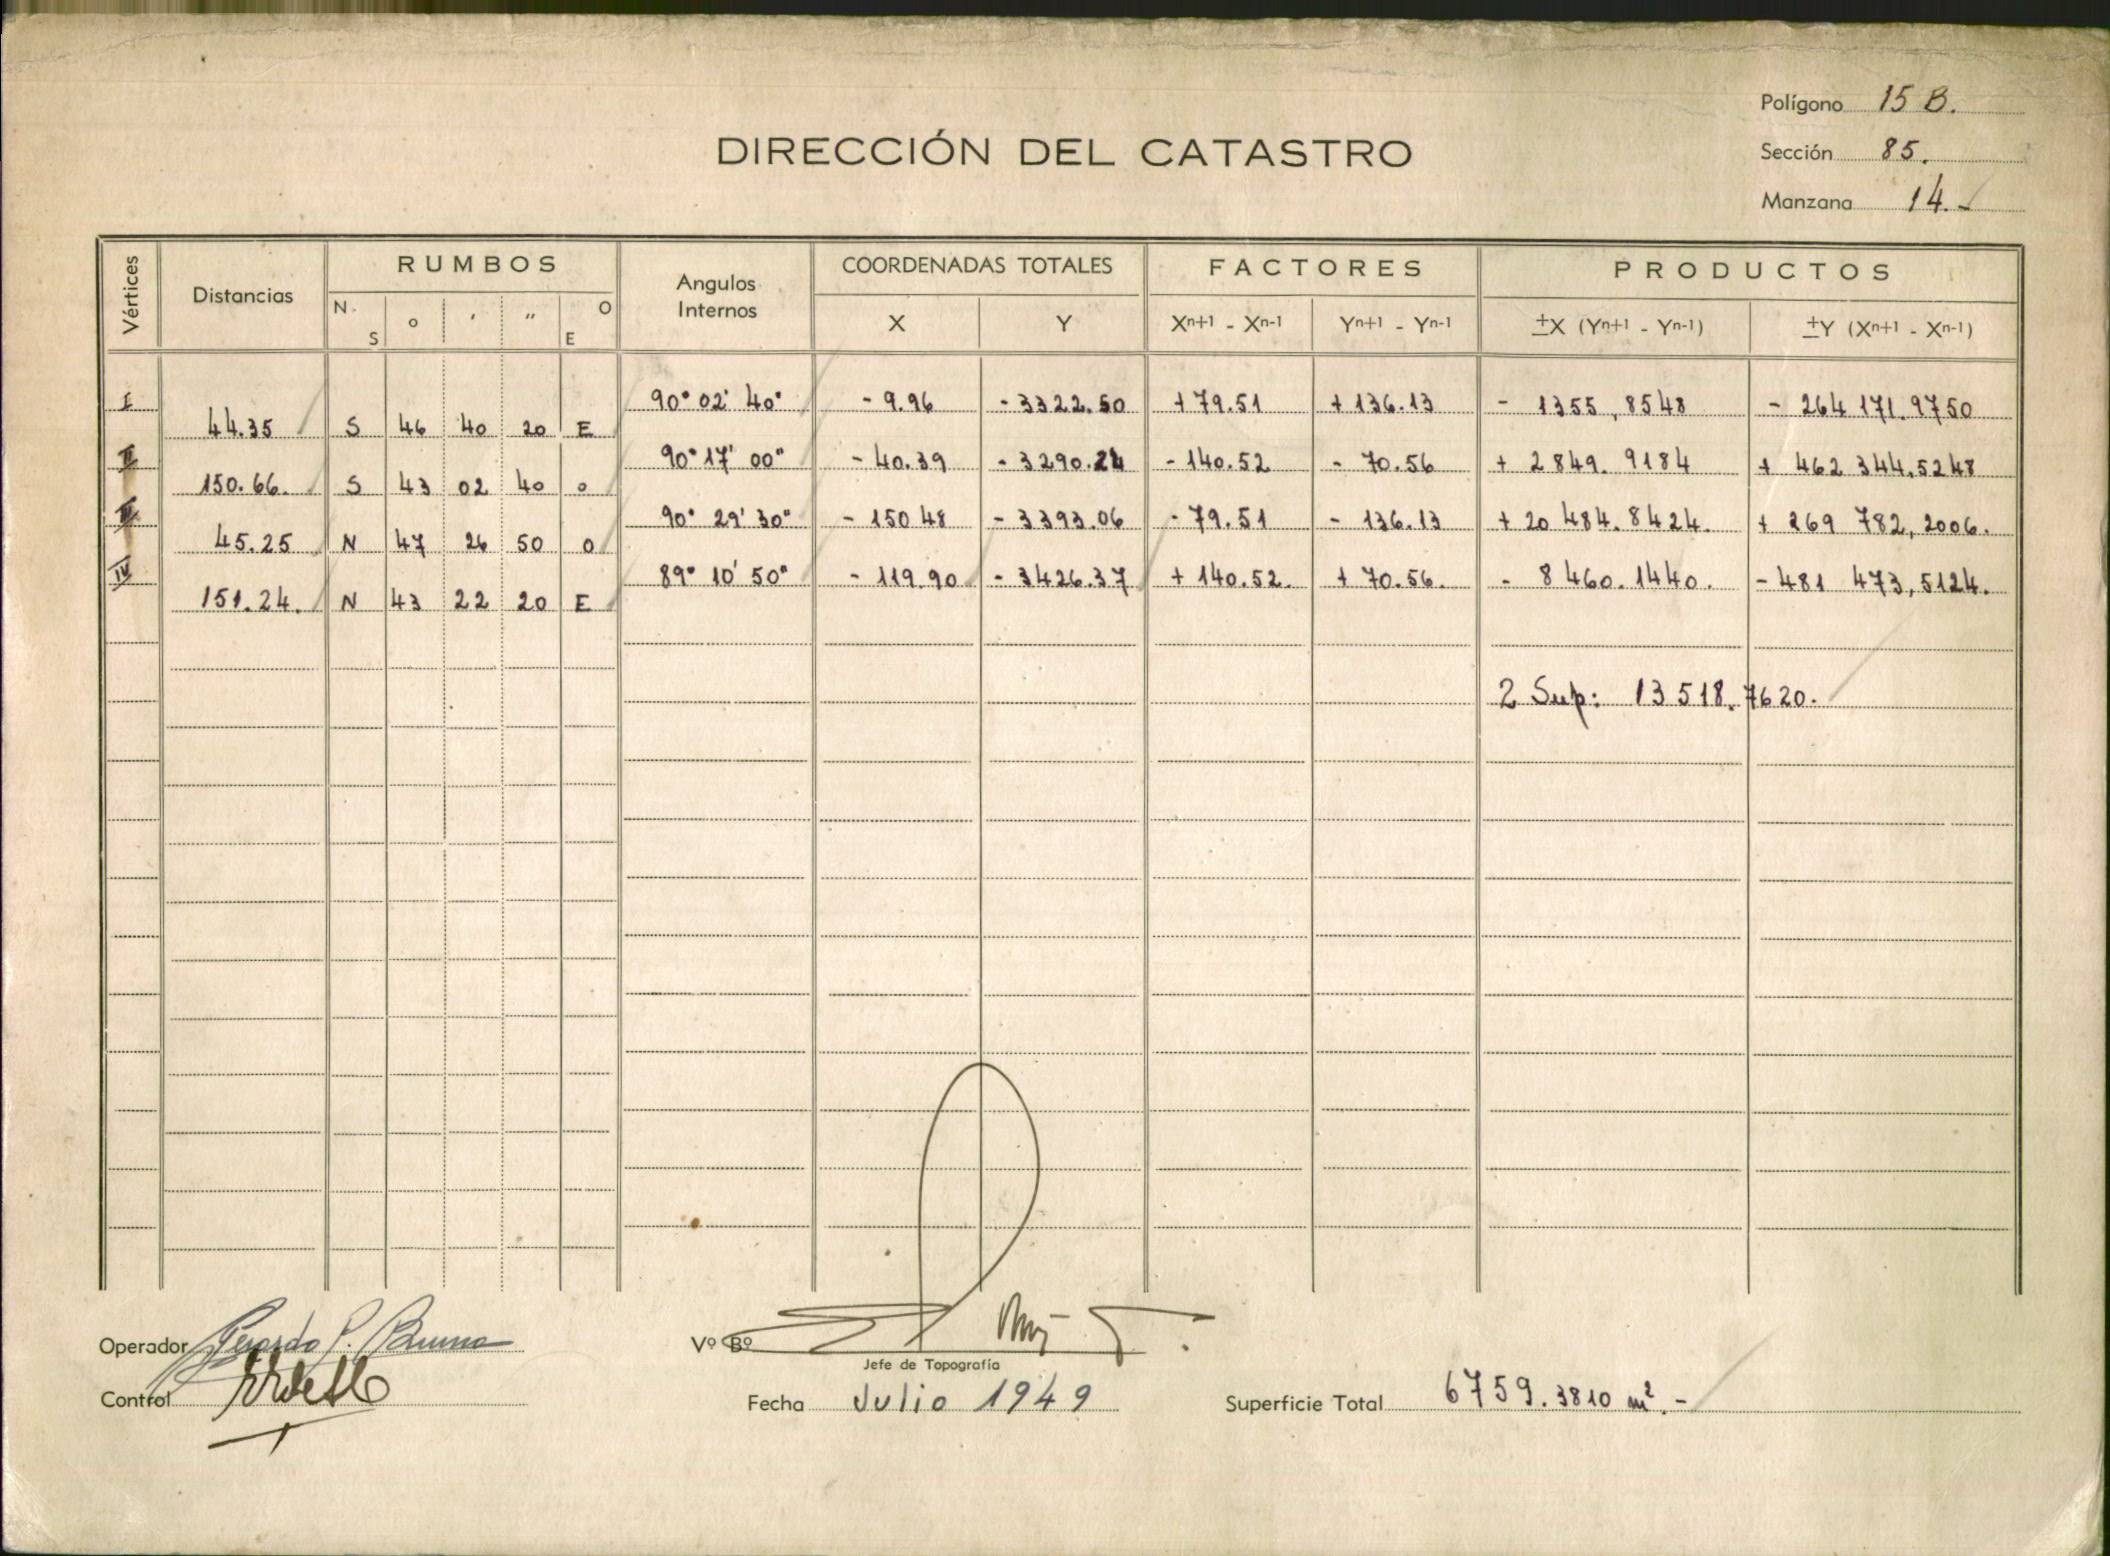 Polígono 15 B.
DIRECCIÓN DEL CATASTRO
Sección 85.
Manzana 14.-
Vértices Distancias RUMBOS Angulos Internos COORDENADAS TOTALES FACTORES PRODUCTOS
N. S o ′ ″ O E X Y Xn+1 - Xn-1 Yn+1 - Yn-1 ±X (Yn+1 - Yn-1) ±Y (Xn+1 - Xn-1)
I 90° 02' 40" - 9.96 - 3322.50 + 79.51 + 136.13 - 1355,8548 - 264 171.9750
44.35 S 46 40 20 E
II 90° 17' 00" - 40.39 - 3290.24 - 140.52 - 70.56 + 2849.9184 + 462 344,5248
150.66. S 43 02 40 o
III 90° 29' 30" - 150 48 - 3393.06 - 79.51 - 136.13 + 20 484.8424. + 269 782,2006.
45.25 N 47 26 50 O
IV 89° 10' 50" - 119.90 - 3426.37 + 140.52. + 70.56. - 8 460.1440. - 481 473,5124.
151.24. N 43 22 20 E
2 Sup: 13 518.7620.
Operador
Vº Bº
Jefe de Topografía
Control
Fecha Julio 1949
Superficie Total 6759.3810 m². -